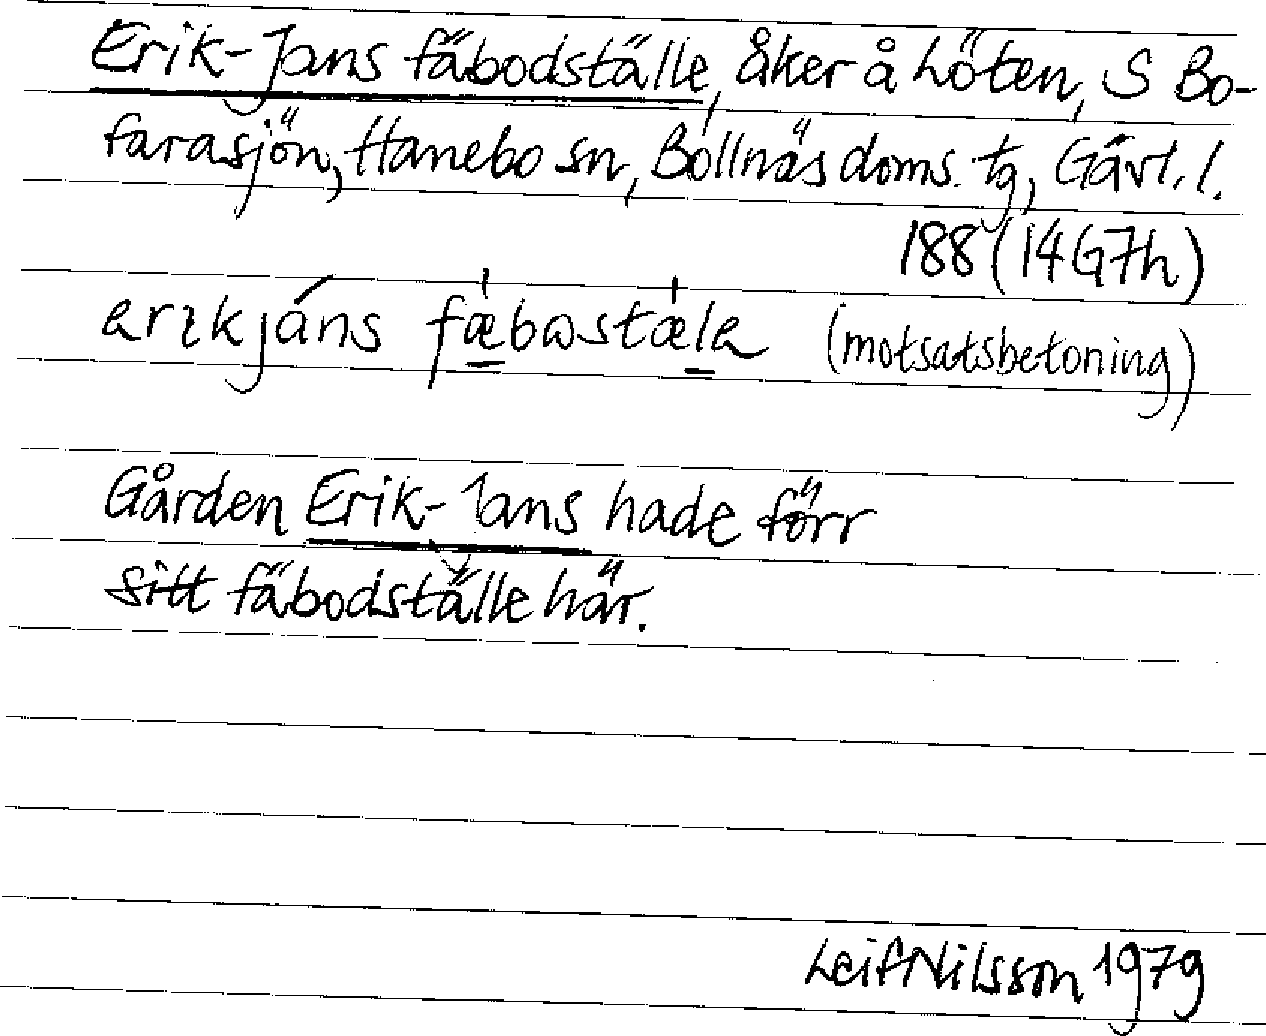 Erik-Jans fäbodställe, åker å Löten, S Bo-
farasjön, Hanebo sn, Bollnäs doms. tg, Gävl. l.
188 (14G7h)
erɪkjáns fæ̀bωstæ̀le (motsatsbetoning)
Gården Erik-Jans hade förr
sitt fäbodställe här.
Leif Nilsson 1979